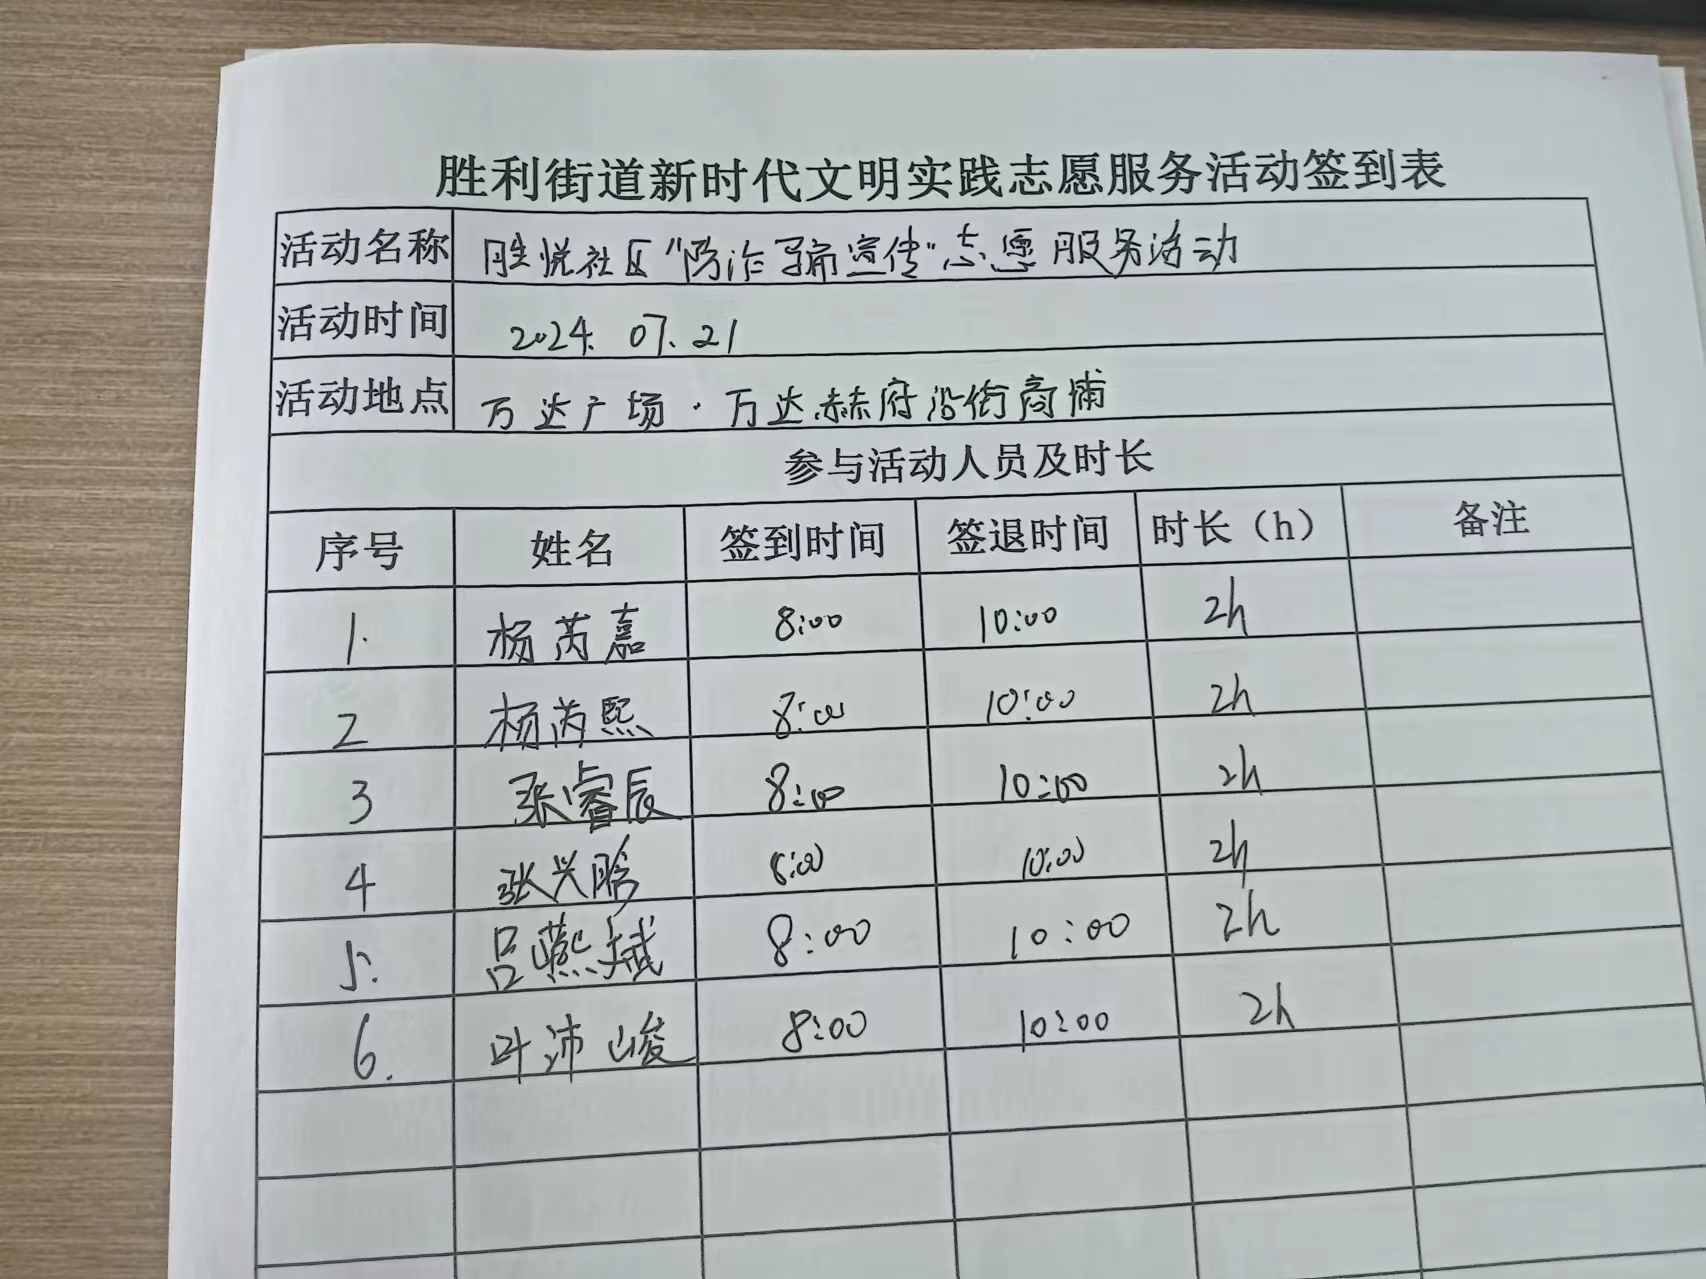 胜利街道新时代文明实践志愿服务活动签到表
活动名称 胜悦社区“防诈骗宣传”志愿服务活动
活动时间 2024.07.21
活动地点 万达广场·万达赫府沿街商铺
参与活动人员及时长
序号 姓名 签到时间 签退时间 时长（h） 备注
1. 杨芮嘉 8:00 10:00 2h
2 杨芮熙 8:00 10:00 2h
3 张睿辰 8:00 10:00 2h
4 张兴 8:00 10:00 2h
5. 吕燕斌 8:00 10:00 2h
6. 叶沛峻 8:00 10:00 2h